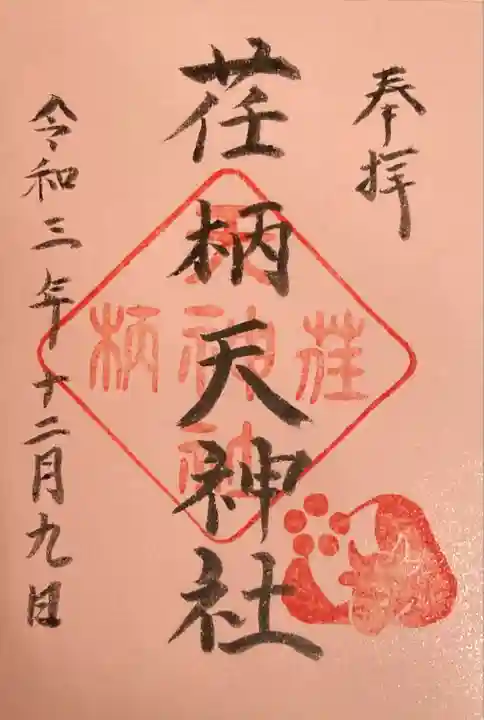 奉拝
荏柄天神社
荏柄天神社
令和三年十二月九日